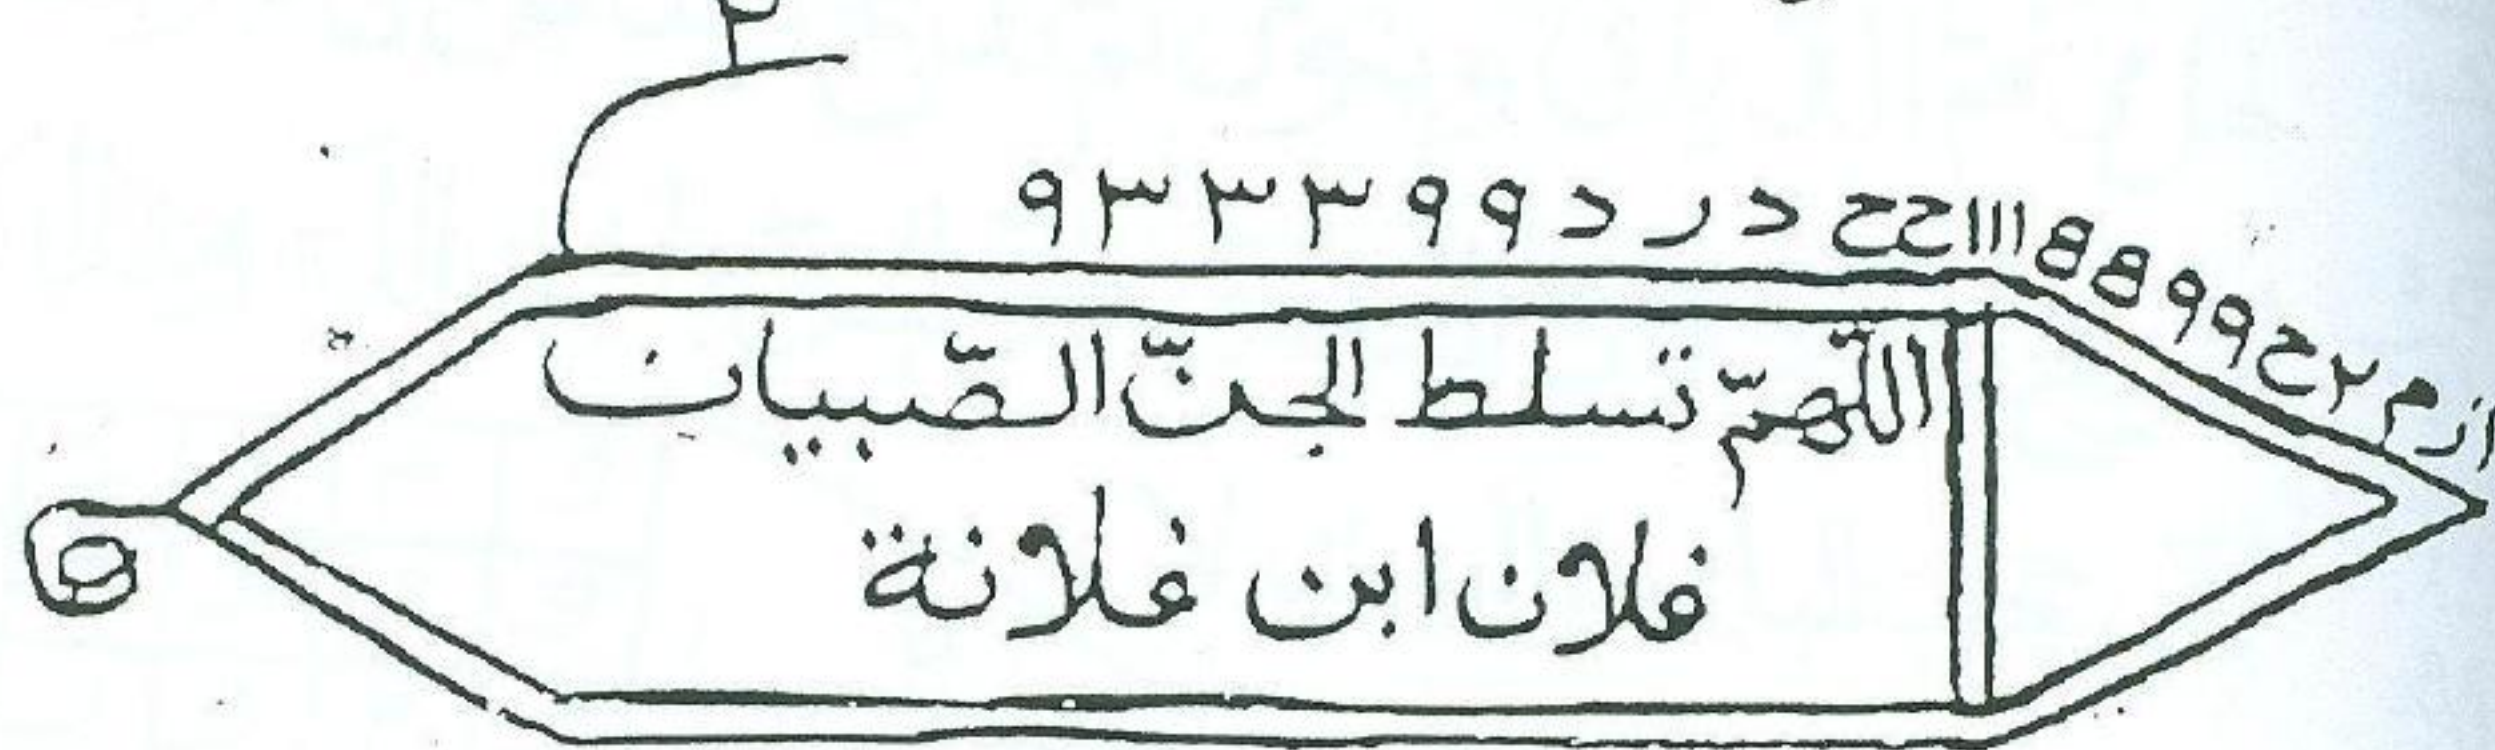 ٩ ٣ ٣ ٣ ٩ ٩ د ر د حح ااا 8 8 ٩ ٩ ح ٢ م ا ز
اللّهمّ تسلط الجنّ الصّبيان
فلان ابن فلانة